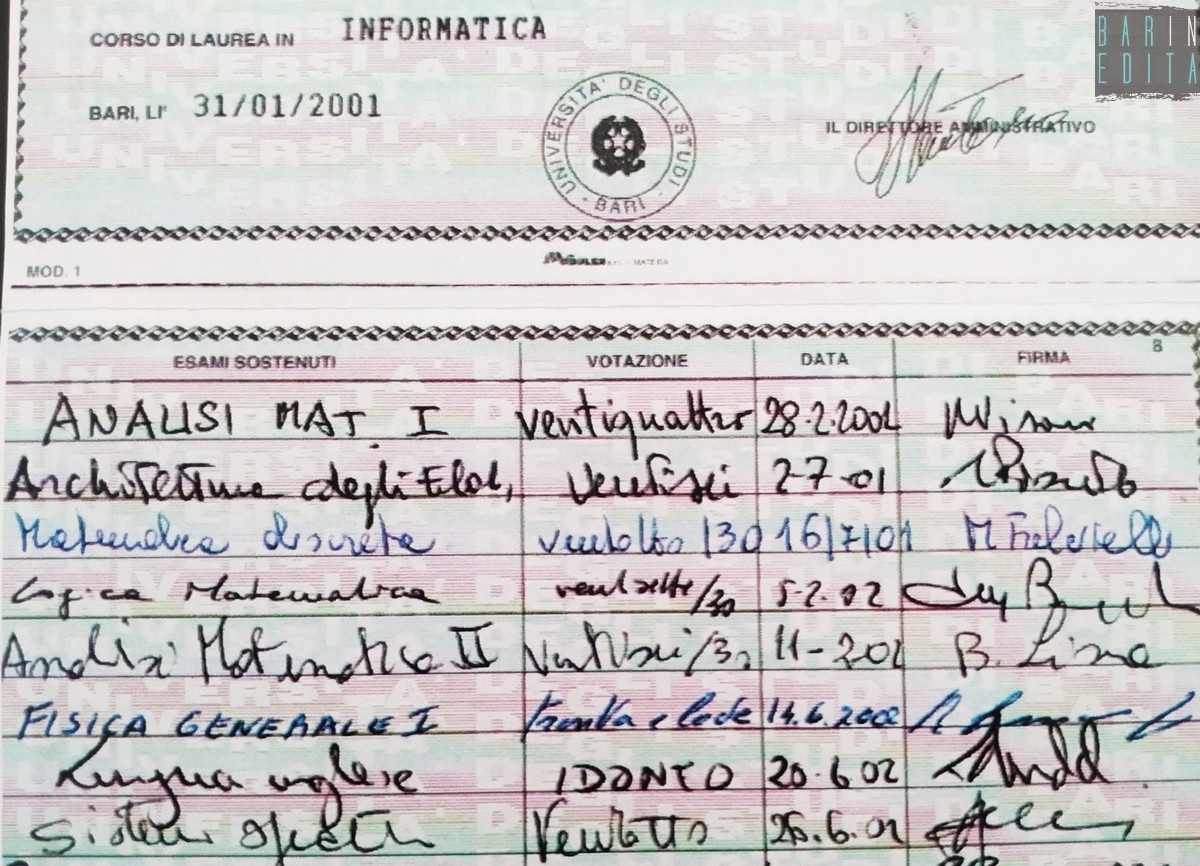 BARIN
EDITA
CORSO DI LAUREA IN INFORMATICA
BARI, LI' 31/01/2001
UNIVERSITA' DEGLI STUDI - BARI -
IL DIRETTORE AMMINISTRATIVO
MOD. 1
8
ESAMI SOSTENUTI VOTAZIONE DATA FIRMA
ANALISI MAT. I ventiquattro 28.2.2001
Architettura degli Elab, ventisei 2-7-01
Matematica discreta ventotto/30 16/7/01
Logica Matematica ventisette/30 5-2.02
Analisi Matematica II Ventisei/30 B. Lisma
FISICA GENERALE I trenta e lode 14.6.2002
Lingua inglese IDONEO 20.6.02
Sistemi Operativi Ventotto